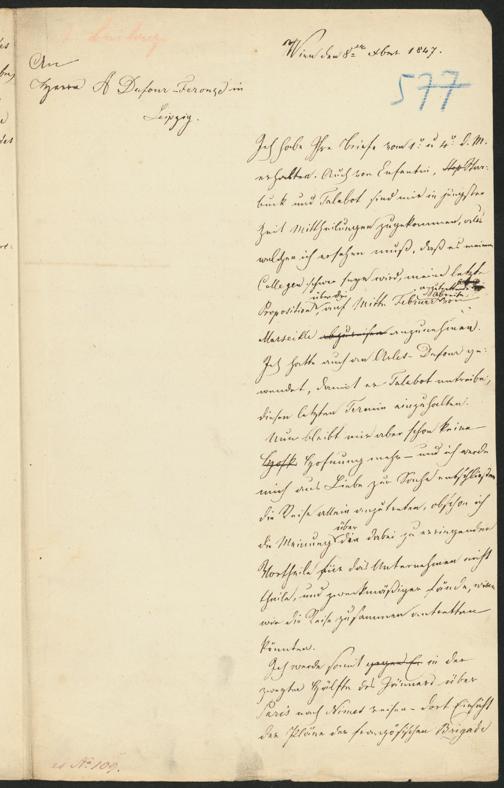 Wien den 8ten Xber 1847.
577
An
Herrn A Dufour-Feronçe in
Leipzig.
Ich habe Ihre Briefe vom 1t u 4t d. M.
erhalten. Auch von Enfantin, Star-
buck und Talabot sind mir in jüngster
Zeit Mittheilungen zugekommen, aus
welchen ich ersehen muß, daß es meinen
Collegen schwer seyn wird, meine letzte
Proposition, auf Mitte Februar von
Marseille abzureisen anzunehmen.
Ich hatte auch an Arles-Dufour ge-
wendet, damit er Talabot antreibe,
diesen letzten Termin einzuhalten.
Nun bleibt mir aber schon keine
Hofnung mehr – und ich werde
mich aus Liebe zur Sache entschließen
die Reise allein anzutreten, obschon ich
die Meinung über die dabei zu erringenden
Vortheile für das Unternehmen nicht
theile, und zweckmäßiger fände, wenn
wir die Reise zusammen antretten
könnten.
Ich werde somit in der
zweyten Hälfte des Jänners über
Paris nach Nimes reisen – dort Einsicht
der Pläne der französischen Brigade
es No 109.